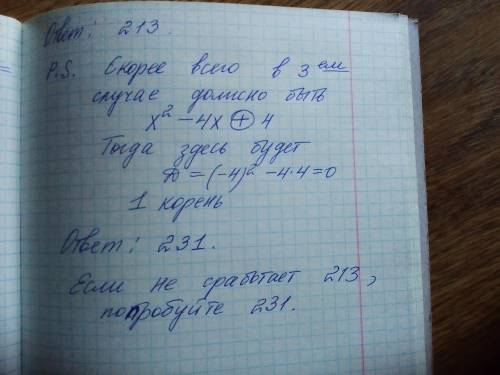 Ответ: 213.
P.S. Скорее всего в 3 ем
случае должно быть
x² - 4x ⊕ 4
Тогда здесь будет
D = (-4)² - 4·4 = 0
1 корень
Ответ: 231.
Если не сработает 213,
попробуйте 231.